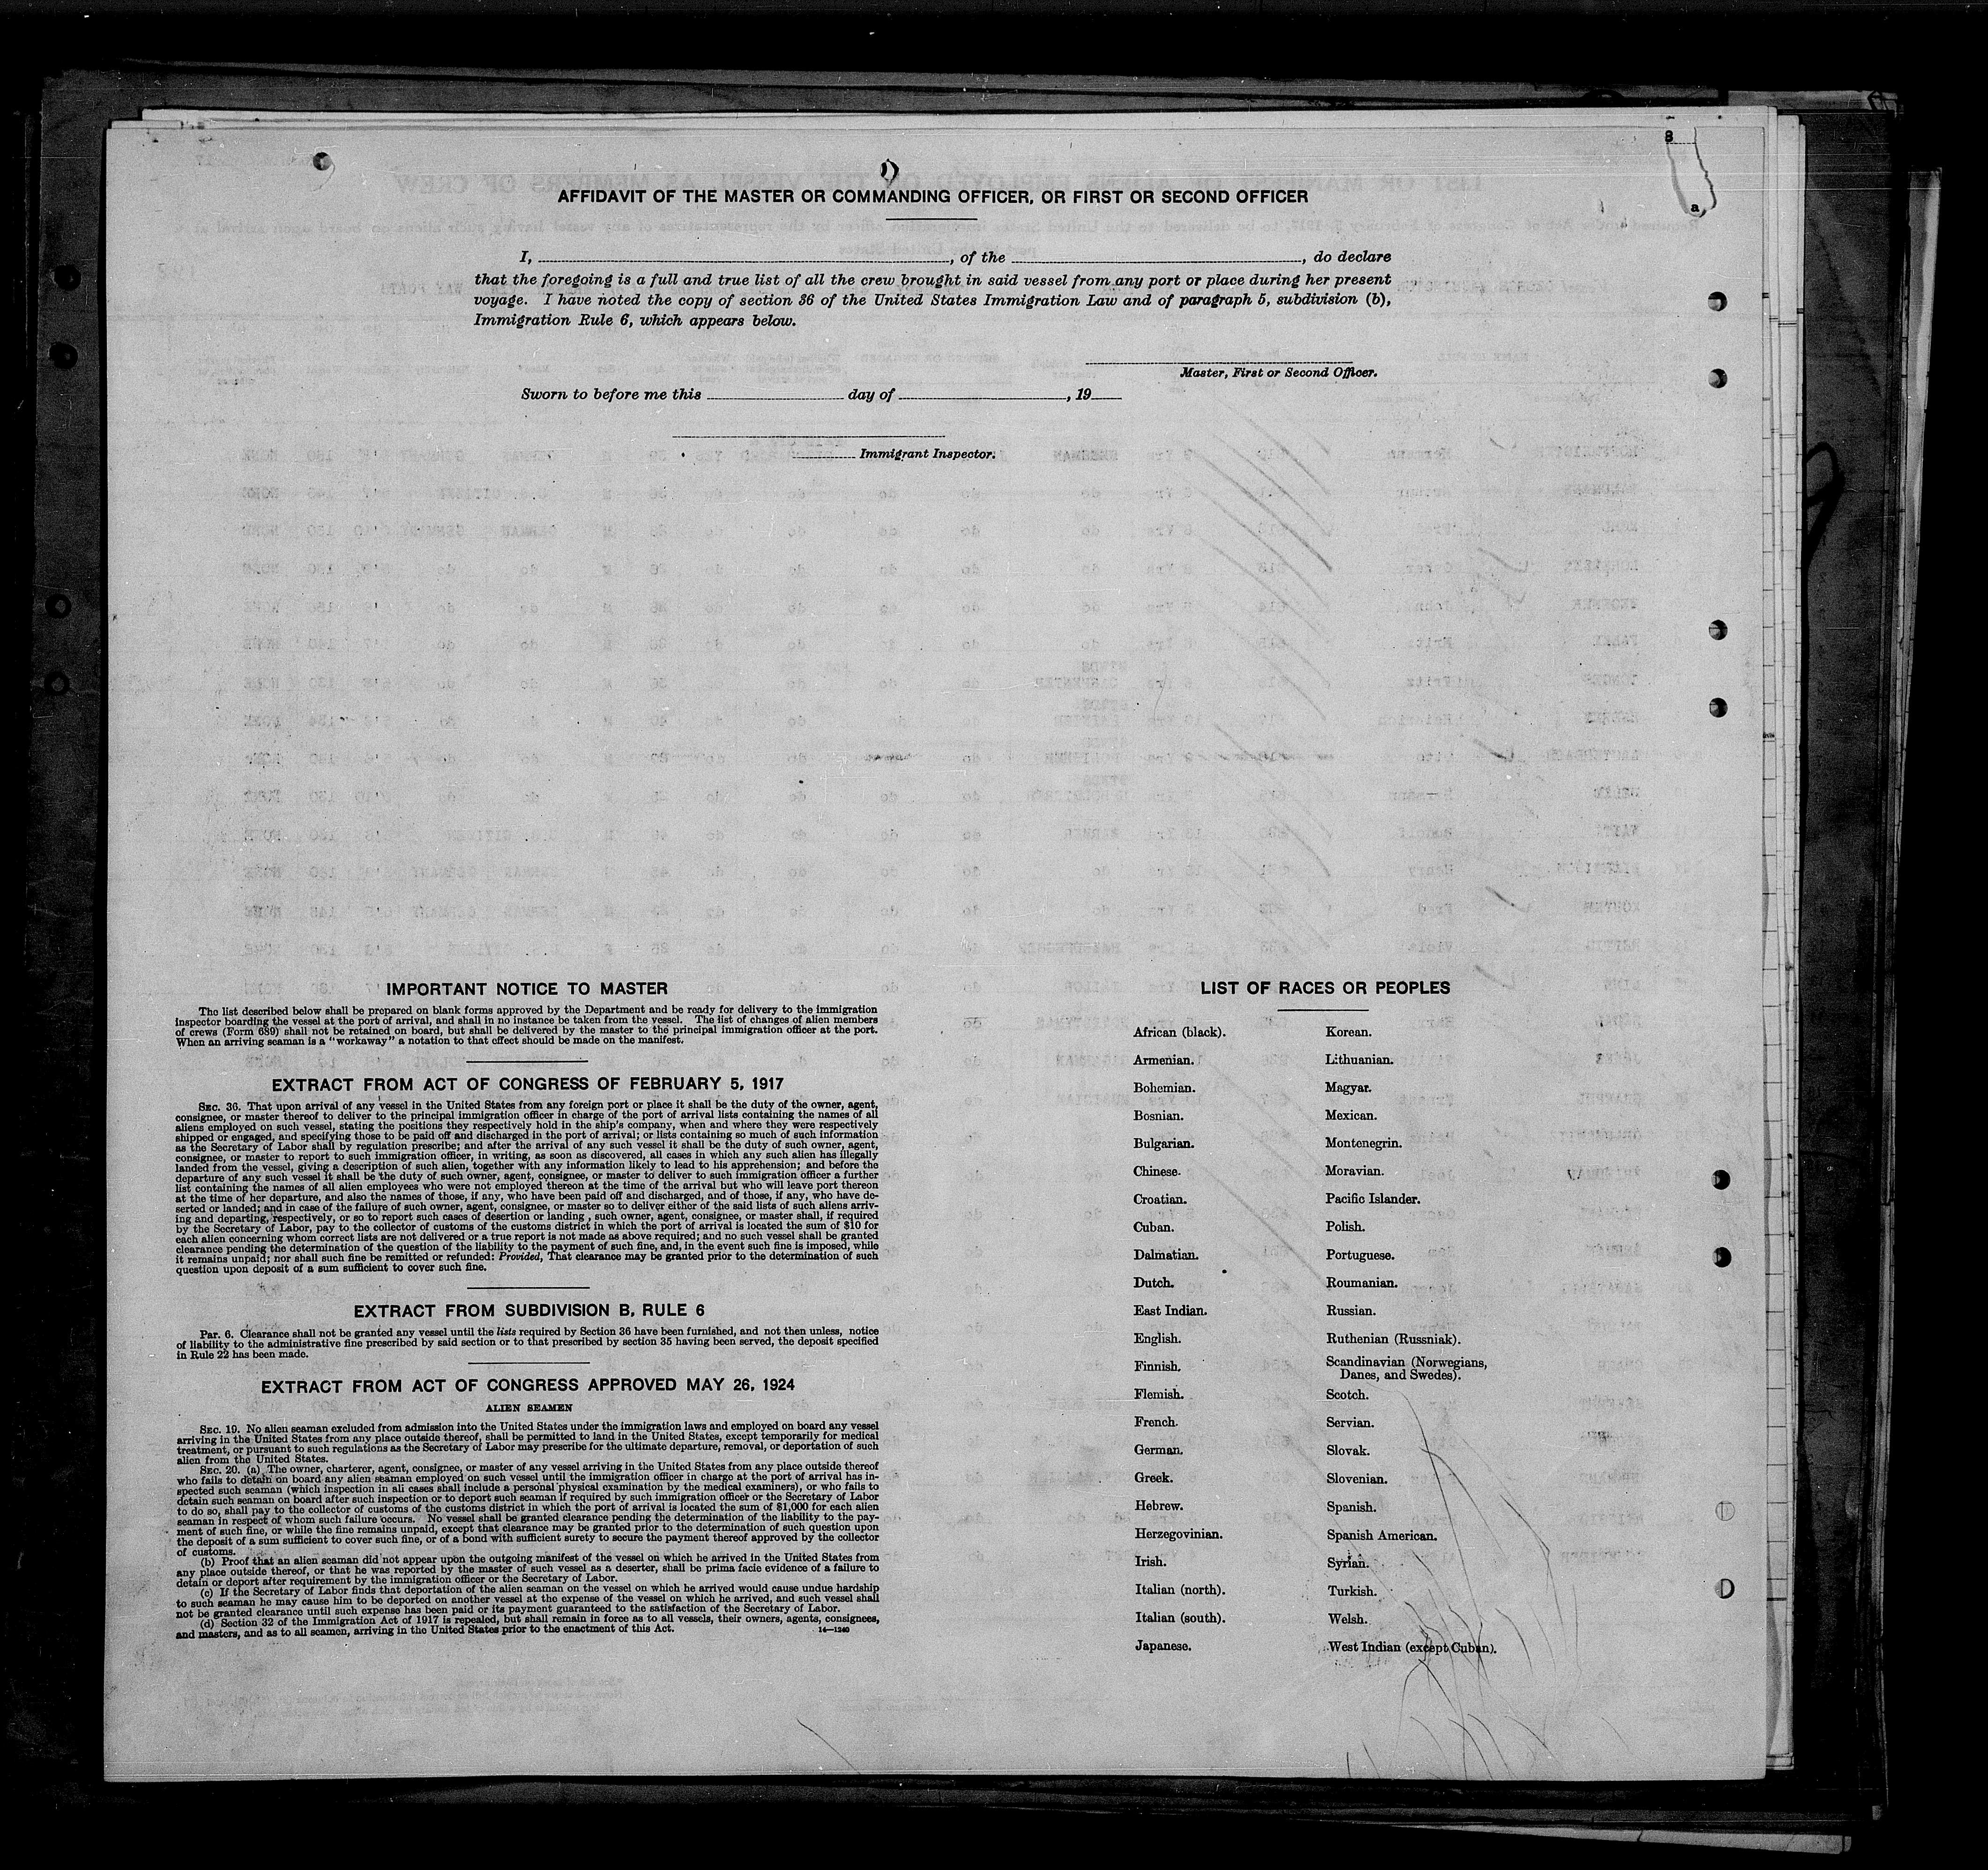 8
a
AFFIDAVIT OF THE MASTER OR COMMANDING OFFICER, OR FIRST OR SECOND OFFICER
I, , of the , do declare
that the foregoing is a full and true list of all the crew brought in said vessel from any port or place during her present
voyage. I have noted the copy of section 36 of the United States Immigration Law and of paragraph 5, subdivision (b),
Immigration Rule 6, which appears below.
Master, First or Second Officer.
Sworn to before me this day of , 19
Immigrant Inspector.
IMPORTANT NOTICE TO MASTER
The list described below shall be prepared on blank forms approved by the Department and be ready for delivery to the immigration
inspector boarding the vessel at the port of arrival, and shall in no instance be taken from the vessel. The list of changes of alien members
of crews (Form 689) shall not be retained on board, but shall be delivered by the master to the principal immigration officer at the port.
When an arriving seaman is a "workaway" a notation to that effect should be made on the manifest.
EXTRACT FROM ACT OF CONGRESS OF FEBRUARY 5, 1917
SEC. 36. That upon arrival of any vessel in the United States from any foreign port or place it shall be the duty of the owner, agent,
consignee, or master thereof to deliver to the principal immigration officer in charge of the port of arrival lists containing the names of all
aliens employed on such vessel, stating the positions they respectively hold in the ship's company, when and where they were respectively
shipped or engaged, and specifying those to be paid off and discharged in the port of arrival; or lists containing so much of such information
as the Secretary of Labor shall by regulation prescribe; and after the arrival of any such vessel it shall be the duty of such owner, agent,
consignee, or master to report to such immigration officer, in writing, as soon as discovered, all cases in which any such alien has illegally
landed from the vessel, giving a description of such alien, together with any information likely to lead to his apprehension; and before the
departure of any such vessel it shall be the duty of such owner, agent, consignee, or master to deliver to such immigration officer a further
list containing the names of all alien employees who were not employed thereon at the time of the arrival but who will leave port thereon
at the time of her departure, and also the names of those, if any, who have been paid off and discharged, and of those, if any, who have de-
serted or landed; and in case of the failure of such owner, agent, consignee, or master so to deliver either of the said lists of such aliens arriv-
ing and departing, respectively, or so to report such cases of desertion or landing , such owner, agent, consignee, or master shall, if required
by the Secretary of Labor, pay to the collector of customs of the customs district in which the port of arrival is located the sum of $10 for
each alien concerning whom correct lists are not delivered or a true report is not made as above required; and no such vessel shall be granted
clearance pending the determination of the question of the liability to the payment of such fine, and, in the event such fine is imposed, while
it remains unpaid; nor shall such fine be remitted or refunded: Provided, That clearance may be granted prior to the determination of such
question upon deposit of a sum sufficient to cover such fine.
EXTRACT FROM SUBDIVISION B, RULE 6
Par. 6. Clearance shall not be granted any vessel until the lists required by Section 36 have been furnished, and not then unless, notice
of liability to the administrative fine prescribed by said section or to that prescribed by section 35 having been served, the deposit specified
in Rule 22 has been made.
EXTRACT FROM ACT OF CONGRESS APPROVED MAY 26, 1924
ALIEN SEAMEN
SEC. 19. No alien seaman excluded from admission into the United States under the immigration laws and employed on board any vessel
arriving in the United States from any place outside thereof, shall be permitted to land in the United States, except temporarily for medical
treatment, or pursuant to such regulations as the Secretary of Labor may prescribe for the ultimate departure, removal, or deportation of such
alien from the United States.
SEC. 20. (a) The owner, charterer, agent, consignee, or master of any vessel arriving in the United States from any place outside thereof
who fails to detain on board any alien seaman employed on such vessel until the immigration officer in charge at the port of arrival has in-
spected such seaman (which inspection in all cases shall include a personal physical examination by the medical examiners), or who fails to
detain such seaman on board after such inspection or to deport such seaman if required by such immigration officer or the Secretary of Labor
to do so, shall pay to the collector of customs of the customs district in which the port of arrival is located the sum of $1,000 for each alien
seaman in respect of whom such failure occurs. No vessel shall be granted clearance pending the determination of the liability to the pay-
ment of such fine, or while the fine remains unpaid, except that clearance may be granted prior to the determination of such question upon
the deposit of a sum sufficient to cover such fine, or of a bond with sufficient surety to secure the payment thereof approved by the collector
of customs.
(b) Proof that an alien seaman did not appear upon the outgoing manifest of the vessel on which he arrived in the United States from
any place outside thereof, or that he was reported by the master of such vessel as a deserter, shall be prima facie evidence of a failure to
detain or deport after requirement by the immigration officer or the Secretary of Labor.
(c) If the Secretary of Labor finds that deportation of the alien seaman on the vessel on which he arrived would cause undue hardship
to such seaman he may cause him to be deported on another vessel at the expense of the vessel on which he arrived, and such vessel shall
not be granted clearance until such expense has been paid or its payment guaranteed to the satisfaction of the Secretary of Labor.
(d) Section 32 of the Immigration Act of 1917 is repealed, but shall remain in force as to all vessels, their owners, agents, consignees,
and masters, and as to all seamen, arriving in the United States prior to the enactment of this Act. 14—1240
LIST OF RACES OR PEOPLES
African (black).
Armenian.
Bohemian.
Bosnian.
Bulgarian.
Chinese.
Croatian.
Cuban.
Dalmatian.
Dutch.
East Indian.
English.
Finnish.
Flemish.
French.
German.
Greek.
Hebrew.
Herzegovinian.
Irish.
Italian (north).
Italian (south).
Japanese.
Korean.
Lithuanian.
Magyar.
Mexican.
Montenegrin.
Moravian.
Pacific Islander.
Polish.
Portuguese.
Roumanian.
Russian.
Ruthenian (Russniak).
Scandinavian (Norwegians,
Danes, and Swedes).
Scotch.
Servian.
Slovak.
Slovenian.
Spanish.
Spanish American.
Syrian.
Turkish.
Welsh.
West Indian (except Cuban).